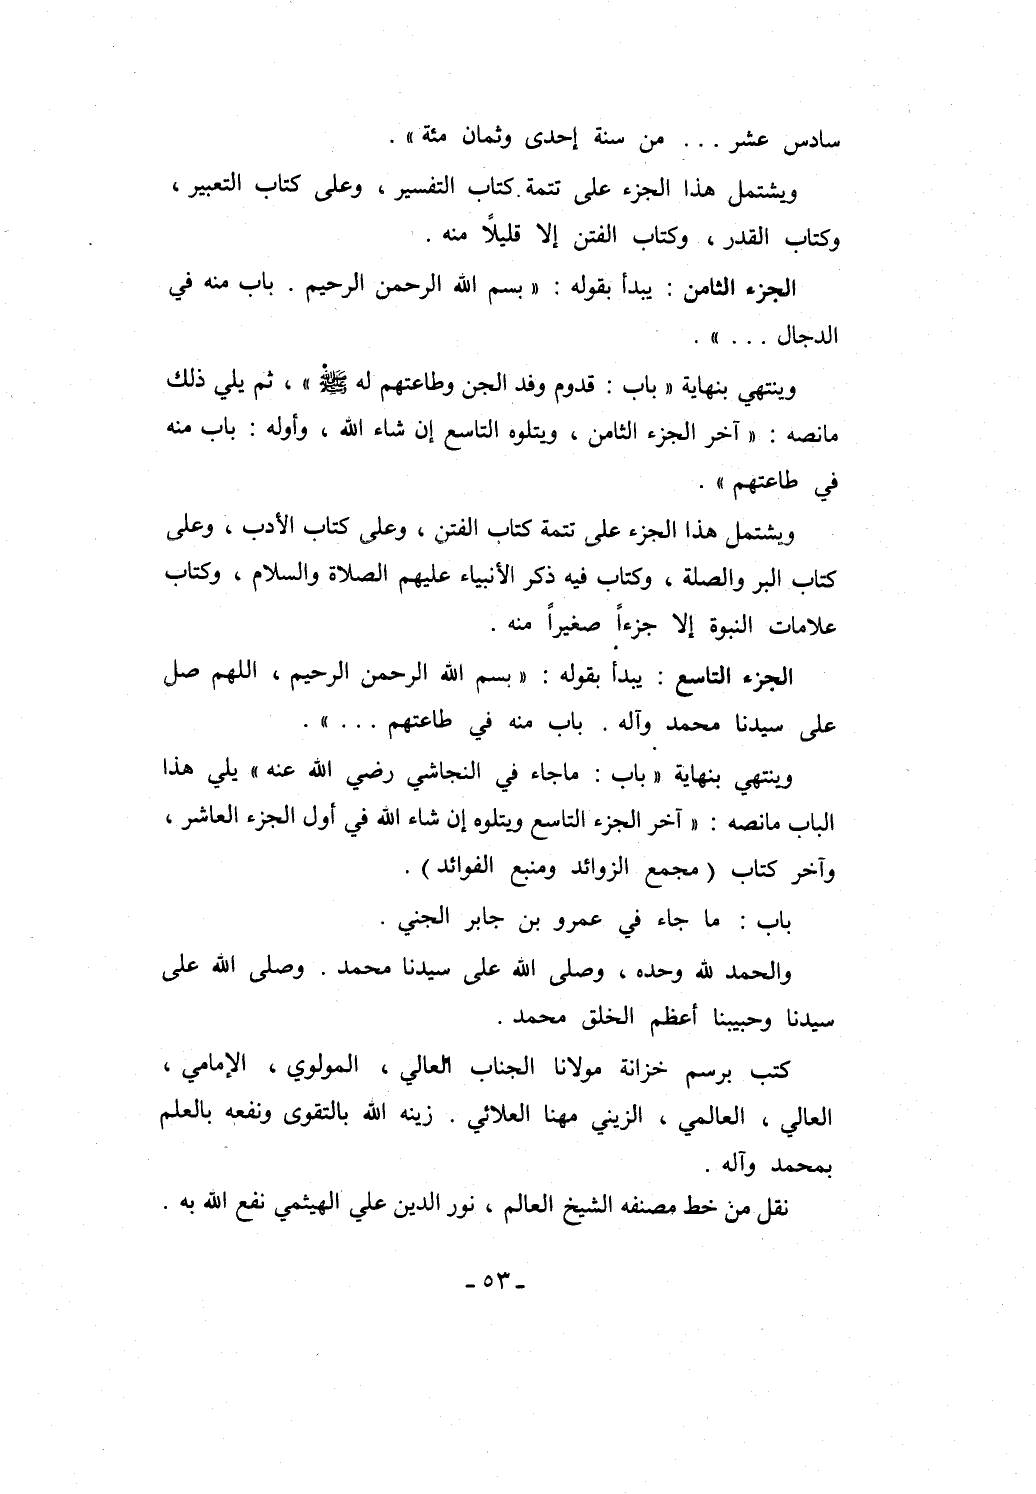 سادس عشر ... من سنة إحدى وثمان مئة » .
ويشتمل هذا الجزء على تتمة كتاب التفسير ، وعلى كتاب التعبير ،
وكتاب القدر ، وكتاب الفتن إلا قليلاً منه .
الجزء الثامن : يبدأ بقوله : « بسم الله الرحمن الرحيم . باب منه في
الدجال ... » .
وينتهي بنهاية « باب : قدوم وفد الجن وطاعتهم له ﷺ » ، ثم يلي ذلك
مانصه : « آخر الجزء الثامن ، ويتلوه التاسع إن شاء الله ، وأوله : باب منه
في طاعتهم » .
ويشتمل هذا الجزء على تتمة كتاب الفتن ، وعلى كتاب الأدب ، وعلى
كتاب البر والصلة ، وكتاب فيه ذكر الأنبياء عليهم الصلاة والسلام ، وكتاب
علامات النبوة إلا جزءاً صغيراً منه .
الجزء التاسع : يبدأ بقوله : « بسم الله الرحمن الرحيم ، اللهم صل
على سيدنا محمد وآله . باب منه في طاعتهم ... » .
وينتهي بنهاية « باب : ماجاء في النجاشي رضي الله عنه » يلي هذا
الباب مانصه : « آخر الجزء التاسع ويتلوه إن شاء الله في أول الجزء العاشر ،
وآخر كتاب ( مجمع الزوائد ومنبع الفوائد ) .
باب : ما جاء في عمرو بن جابر الجني .
والحمد لله وحده ، وصلى الله على سيدنا محمد . وصلى الله على
سيدنا وحبيبنا أعظم الخلق محمد .
كتب برسم خزانة مولانا الجناب العالي ، المولوي ، الإمامي ،
العالي ، العالمي ، الزيني مهنا العلائي . زينه الله بالتقوى ونفعه بالعلم
بمحمد وآله .
نقل من خط مصنفه الشيخ العالم ، نور الدين علي الهيثمي نفع الله به .
- ٥٣ -